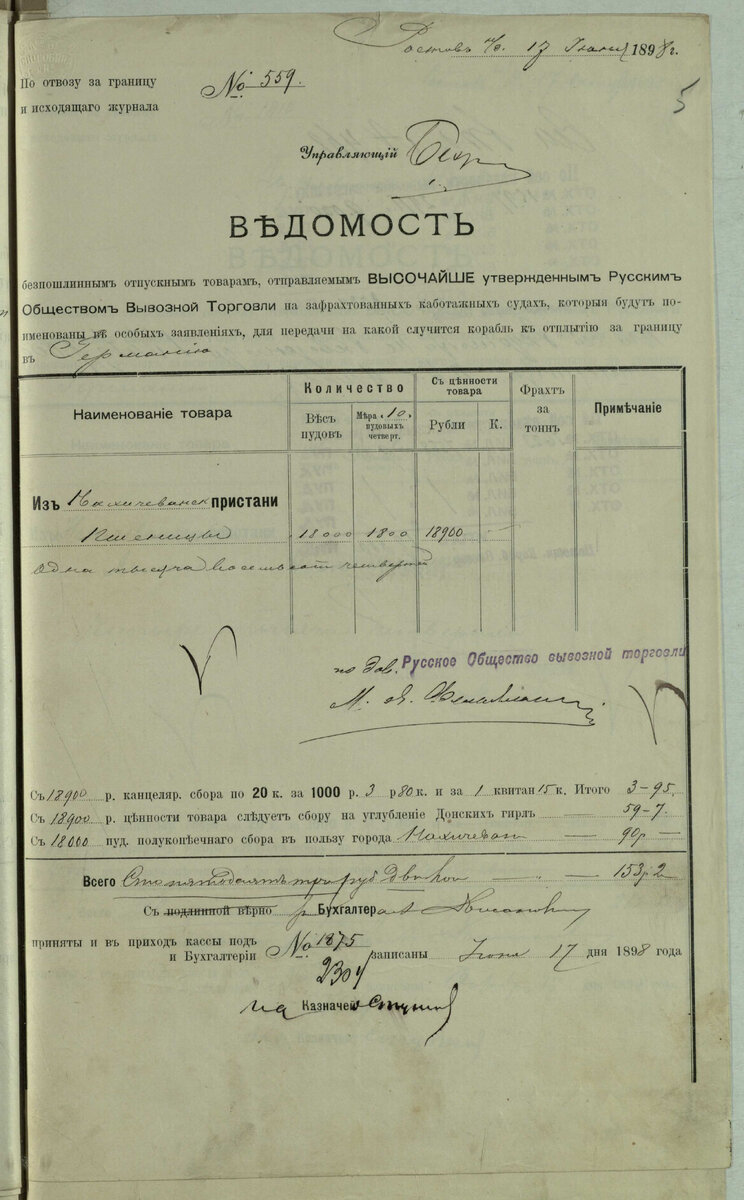 Ростовъ н/Д. 17 Іюня 1898 г.
По отвозу за границу
и исходящаго журнала
№ 559.
5
Управляющій
ВѢДОМОСТЬ
безпошлиннымъ отпускнымъ товарамъ, отправляемымъ ВЫСОЧАЙШЕ утвержденнымъ Русскимъ
Обществомъ Вывозной Торговли на зафрахтованныхъ каботажныхъ судахъ, которыя будутъ по-
именованы въ особыхъ заявленіяхъ, для передачи на какой случится корабль къ отплытію за границу
въ Германію
Наименованіе товара
Количество
Вѣсъ пудовъ
Мѣра „10„ пудовыхъ четверт.
Съ цѣнности товара
Рубли
К.
Фрахтъ за тоннъ
Примѣчаніе
Изъ Нахичеванск пристани
Пшеницы 18000 1800 18900 —
Одна тысяча восемьсотъ четвертей
по дов. Русское Общество вывозной торговли
Съ 18900 р. канцеляр. сбора по 20 к. за 1000 р. 3 р 80 к. и за 1 квитан 15 к. Итого 3-95.
Съ 18900 р. цѣнности товара слѣдуетъ сбору на углубленіе Донскихъ гирлъ — 59-7.
Съ 18000 пуд. полукопѣечнаго сбора въ пользу города Нахичеван — 90р —
Всего Сто пятьдесятъ три руб две коп — „ — 153р2
Съ подлинной вѣрно Бухгалтер
приняты и въ приходъ кассы подъ
и Бухгалтеріи № 1875 записаны Іюня 17 дня 1898 года
2304
Казначей